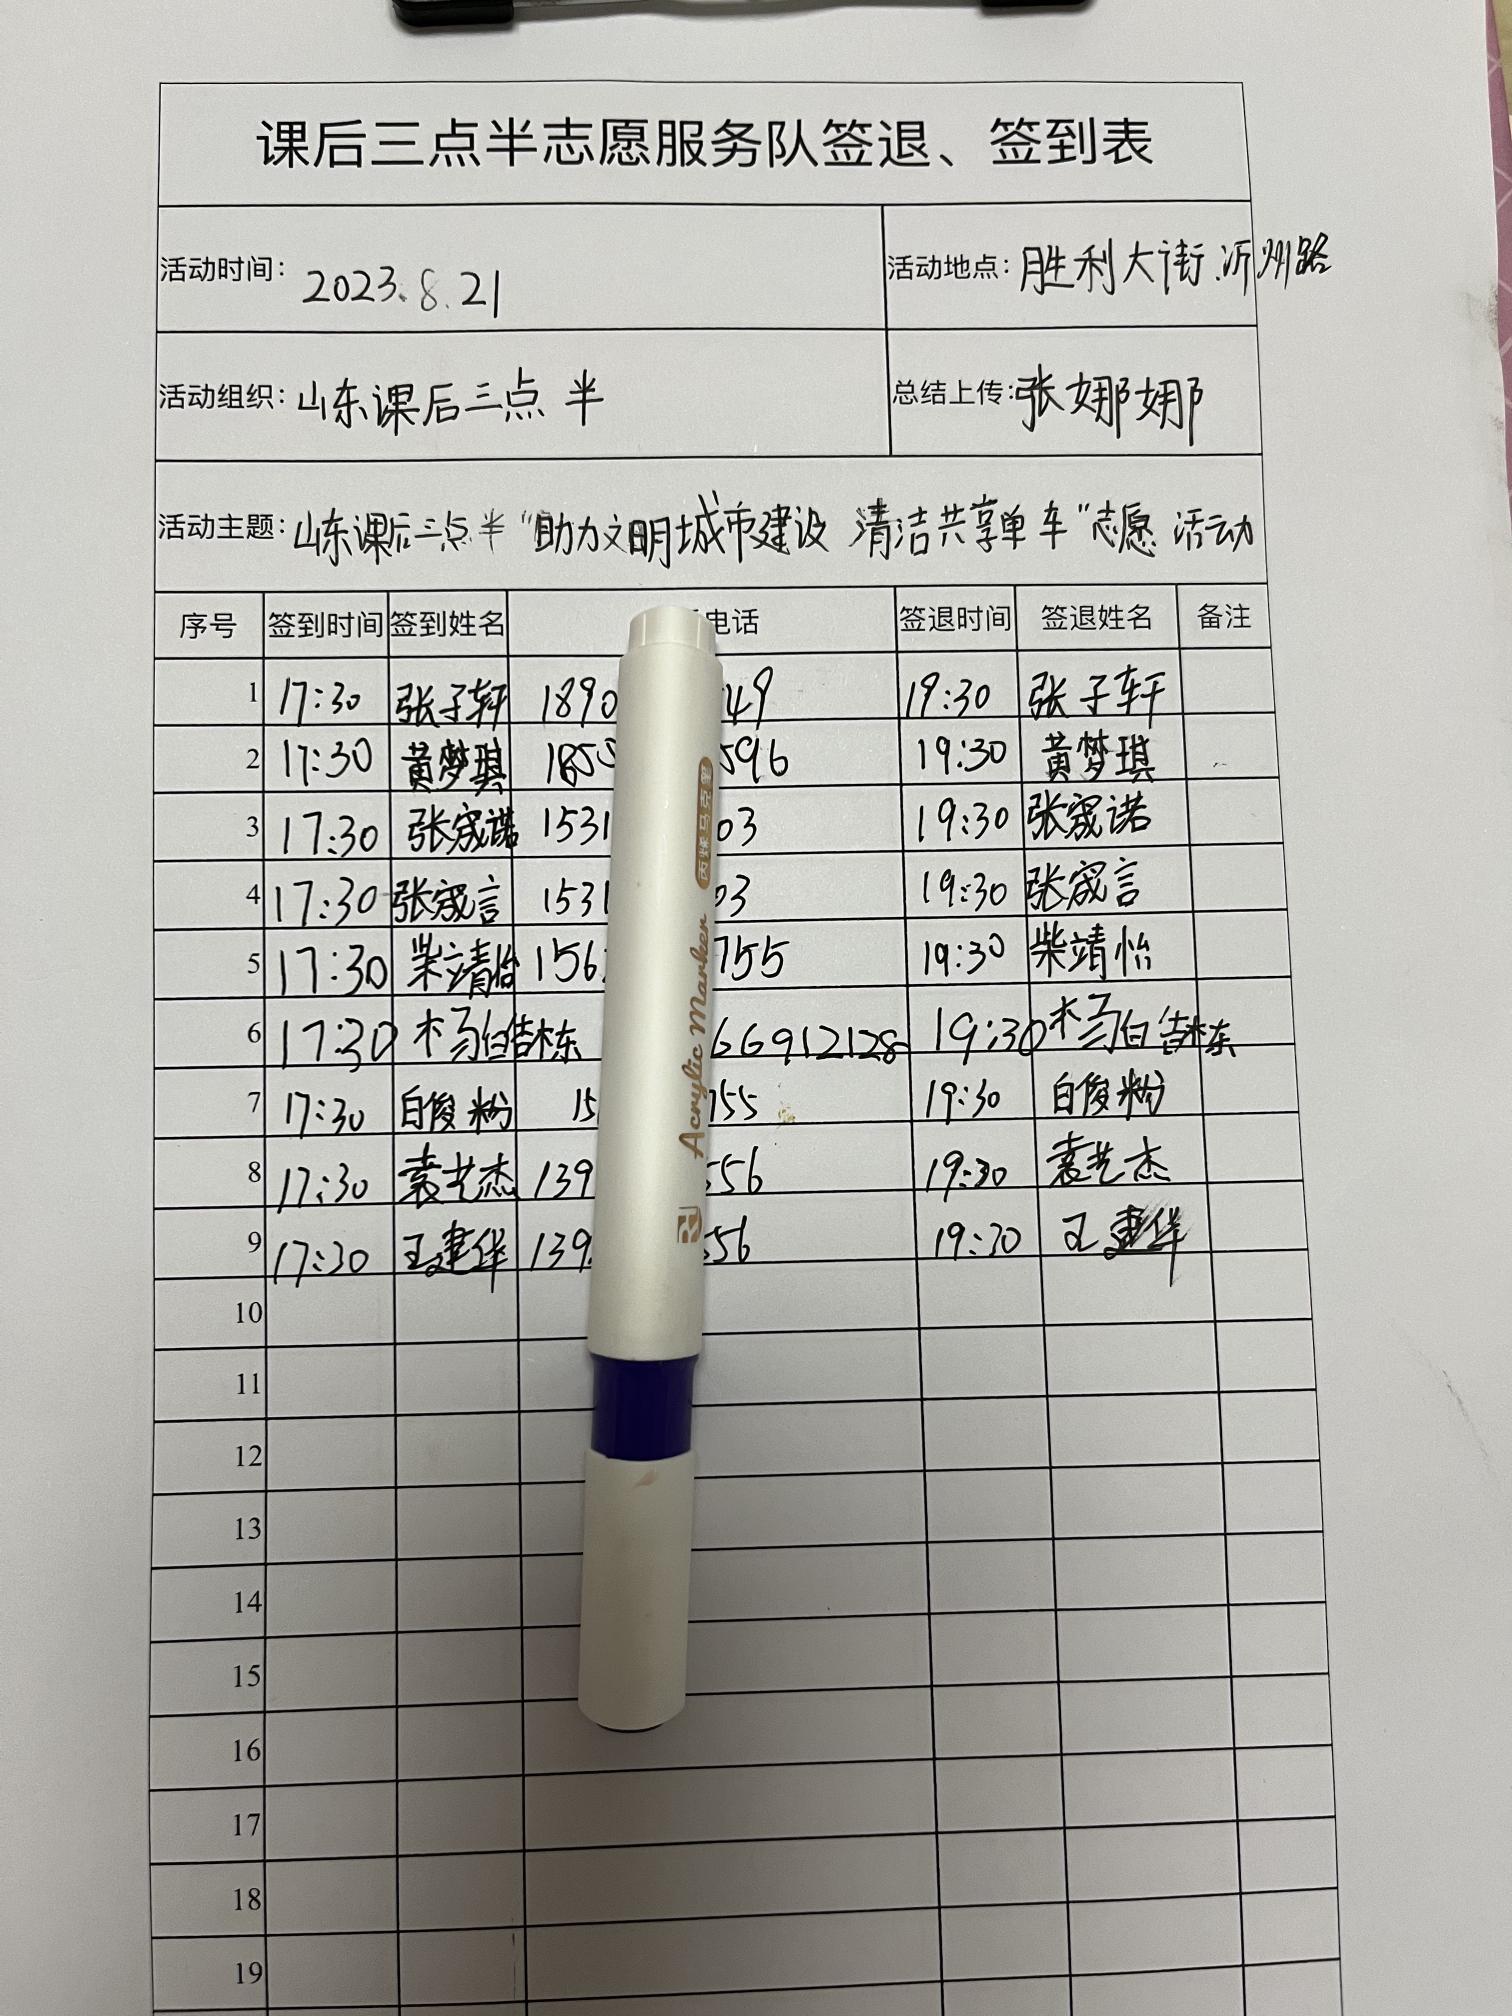 课后三点半志愿服务队签退、签到表
活动时间: 2023.8.21 活动地点: 胜利大街.沂州路
活动组织: 山东课后三点半 总结上传: 张娜娜
活动主题: 山东课后三点半“助力文明城市建设 清洁共享单车”志愿活动
序号 签到时间 签到姓名 电话 签退时间 签退姓名 备注
1 17:30 张子轩 1890 49 19:30 张子轩
2 17:30 黄梦琪 1855 596 19:30 黄梦琪
3 17:30 张宬诺 1531 03 19:30 张宬诺
4 17:30 张宬言 1531 03 19:30 张宬言
5 17:30 柴靖怡 156 755 19:30 柴靖怡
6 17:30 66912128 19:30
7 17:30 白俊粉 15 755 19:30 白俊粉
8 17:30 袁艺杰 139 556 19:30 袁艺杰
9 17:30 王建华 139 556 19:30 王建华
10
11
12
13
14
15
16
17
18
19
Acrylic Marker